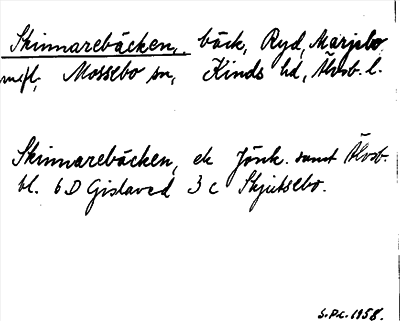 Skinnarebäcken, bäck, Ryd, Märjebo
mfl, Mossebo sn, Kinds hd, Älvsb. l.
Skinnarebäcken, ek Jönk. samt Älvsb.
bl. 6 D Gislaved 3 c Skjutsebo.
S.Pc. 1958.